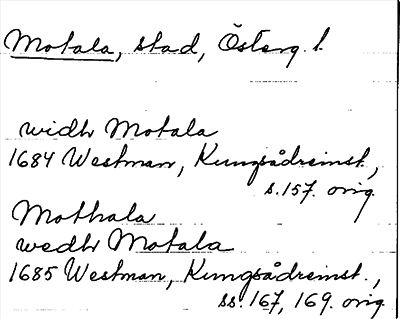 Motala, stad, Österg. l.
widh Motala
1684 Westman, Kungsådreinst.,
s. 157. orig.
Mothala
wedh Motala
1685 Westman, Kungsådreinst.,
ss. 167, 169. orig.